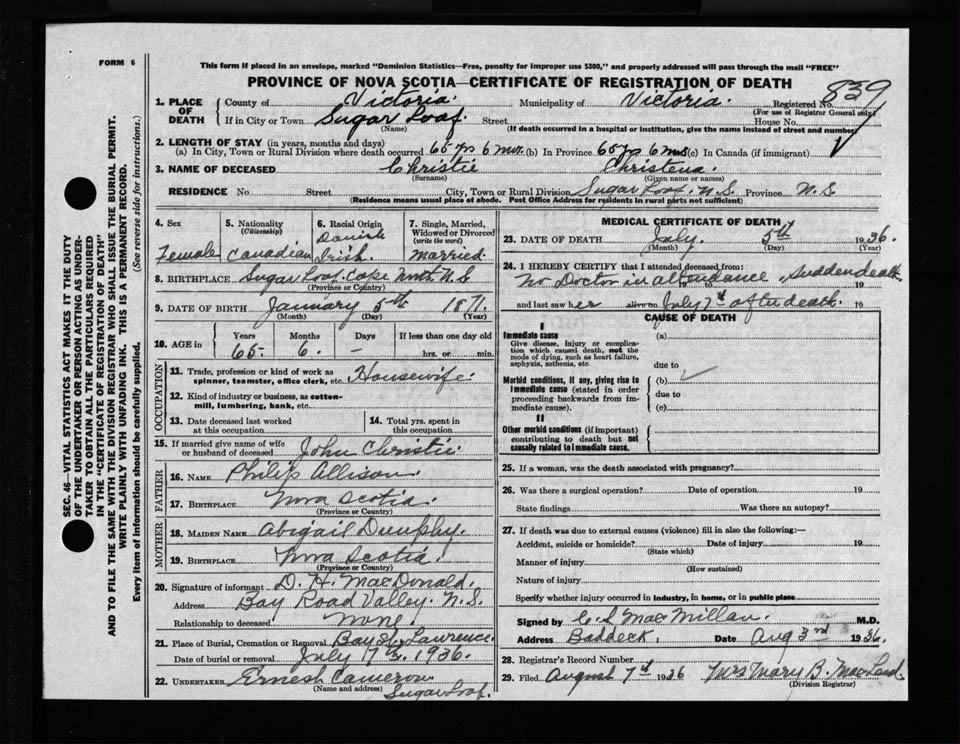 FORM 6
This form if placed in an envelope, marked "Dominion Statistics—Free, penalty for improper use $300," and properly addressed will pass through the mail "FREE"
PROVINCE OF NOVA SCOTIA—CERTIFICATE OF REGISTRATION OF DEATH
839
1. PLACE OF DEATH
County of Victoria. Municipality of Victoria. Registered No.
(For use of Registrar General only)
If in City or Town Sugar Loaf. Street House No.
(Name) (If death occurred in a hospital or institution, give the name instead of street and number)
2. LENGTH OF STAY (in years, months and days)
(a) In City, Town or Rural Division where death occurred 65 yrs 6 mos. (b) In Province 65 yrs 6 mos (c) In Canada (if immigrant)
3. NAME OF DECEASED Christie Christena.
(Surname) (Given name or names)
RESIDENCE No Street City, Town or Rural Division Sugar Loaf. N.S. Province N.S.
(Residence means usual place of abode. Post Office Address for residents in rural parts not sufficient)
4. Sex Female
5. Nationality (Citizenship) Canadian
6. Racial Origin Danish Irish.
7. Single, Married, Widowed or Divorced (write the word) Married.
8. BIRTHPLACE Sugar Loaf. Cape North N.S
(Province or Country)
9. DATE OF BIRTH January 5th 1871.
(Month) (Day) (Year)
10. AGE in Years 65. Months 6. Days – If less than one day hrs. or min.
OCCUPATION
11. Trade, profession or kind of work as spinner, teamster, office clerk, etc. Housewife.
12. Kind of industry or business, as cotton-mill, lumbering, bank, etc.
13. Date deceased last worked at this occupation
14. Total yrs. spent in this occupation
15. If married give name of wife or husband of deceased John Christie.
FATHER
16. NAME Philip Allison.
17. BIRTHPLACE Nova Scotia.
(Province or Country)
MOTHER
18. MAIDEN NAME Abigail Dunphy.
19. BIRTHPLACE Nova Scotia.
(Province or Country)
20. Signature of informant D. H. MacDonald.
Address Bay Road Valley. N.S.
Relationship to deceased None.
21. Place of Burial, Cremation or Removal Bay St. Lawrence.
Date of burial or removal July 7th, 1936.
22. UNDERTAKER Ernest Cameron
(Name and address) Sugar Loaf.
MEDICAL CERTIFICATE OF DEATH
23. DATE OF DEATH July. 5th 1936.
(Month) (Day) (Year)
24. I HEREBY CERTIFY that I attended deceased from:
No Doctor in attendance, Sudden death. 19
and last saw her alive on July 7th after death. 19
CAUSE OF DEATH
I
Immediate cause
Give disease, injury or complication which caused death, not the mode of dying, such as heart failure, asphyxia, asthenia, etc.
(a)
due to
Morbid conditions, if any, giving rise to immediate cause (stated in order proceeding backwards from immediate cause).
(b)
due to
(c)
II
Other morbid conditions (if important) contributing to death but not causally related to immediate cause.
25. If a woman, was the death associated with pregnancy?
26. Was there a surgical operation? Date of operation 19
State findings Was there an autopsy?
27. If death was due to external causes (violence) fill in also the following:—
Accident, suicide or homicide? Date of injury 19
(State which)
Manner of injury
(How sustained)
Nature of injury
Specify whether injury occurred in industry, in home, or in public place
Signed by C. L MacMillan M.D.
Address Baddeck, Date Aug 3rd 1936.
28. Registrar's Record Number
29. Filed August 7th 1936 Mrs Mary B. MacLeod.
(Division Registrar)
SEC. 46—VITAL STATISTICS ACT MAKES IT THE DUTY
OF THE UNDERTAKER OR PERSON ACTING AS UNDER-
TAKER TO OBTAIN ALL THE PARTICULARS REQUIRED
IN THE "CERTIFICATE OF REGISTRATION OF DEATH"
AND TO FILE THE SAME WITH THE DIVISION REGISTRAR WHO SHALL ISSUE THE BURIAL PERMIT.
WRITE PLAINLY WITH UNFADING INK. THIS IS A PERMANENT RECORD.
Every item of information should be carefully supplied. (See reverse side for instructions.)